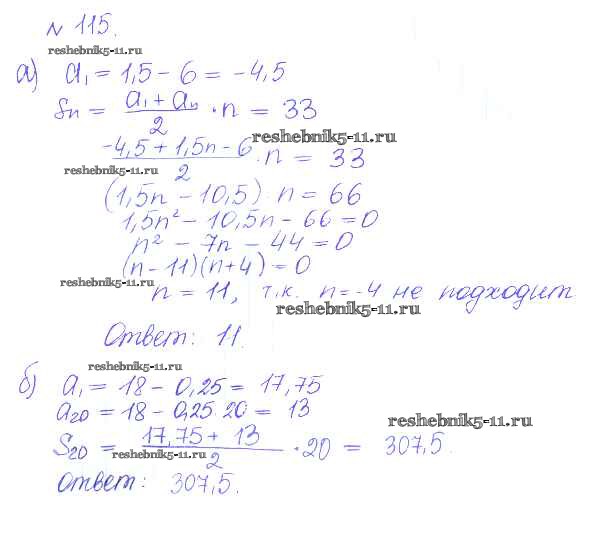 № 115.
reshebnik5-11.ru
а) a₁ = 1,5 - 6 = -4,5
Sn = (a₁ + an)/2 · n = 33
reshebnik5-11.ru
(-4,5 + 1,5n - 6)/2 · n = 33
reshebnik5-11.ru
(1,5n - 10,5) · n = 66
1,5n² - 10,5n - 66 = 0
n² - 7n - 44 = 0
(n - 11)(n + 4) = 0
reshebnik5-11.ru
n = 11, т.к. n = -4 не подходит
reshebnik5-11.ru
Ответ: 11.
reshebnik5-11.ru
б) a₁ = 18 - 0,25 = 17,75
a₂₀ = 18 - 0,25 · 20 = 13
reshebnik5-11.ru
S₂₀ = (17,75 + 13)/2 · 20 = 307,5.
reshebnik5-11.ru
Ответ: 307,5.